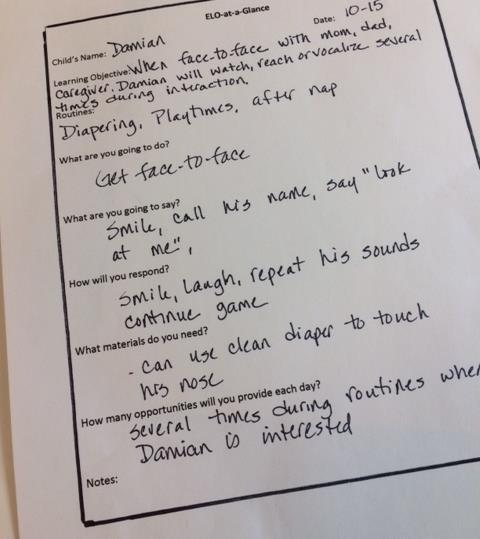 ELO-at-a-Glance
Child's Name: Damian Date: 10-15
Learning Objective: When face-to-face with mom, dad,
caregiver, Damian will watch, reach or vocalize several
times during interaction.
Routines:
Diapering, Playtimes, after nap
What are you going to do?
Get face-to-face
What are you going to say?
Smile, call his name, say "look
at me",
How will you respond?
Smile, Laugh, repeat his sounds
continue game
What materials do you need?
- can use clean diaper to touch
his nose
How many opportunities will you provide each day?
several times during routines when
Damian is interested
Notes: